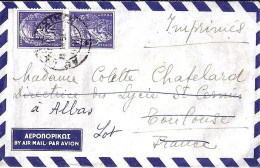 Imprimés
Madame Colette Chatelard
Directrice du Lycée St Sernin
à Albas
Toulouse
Lot
France
ΑΕΡΟΠΟΡΙΚΩΣ
BY AIR MAIL-PAR AVION